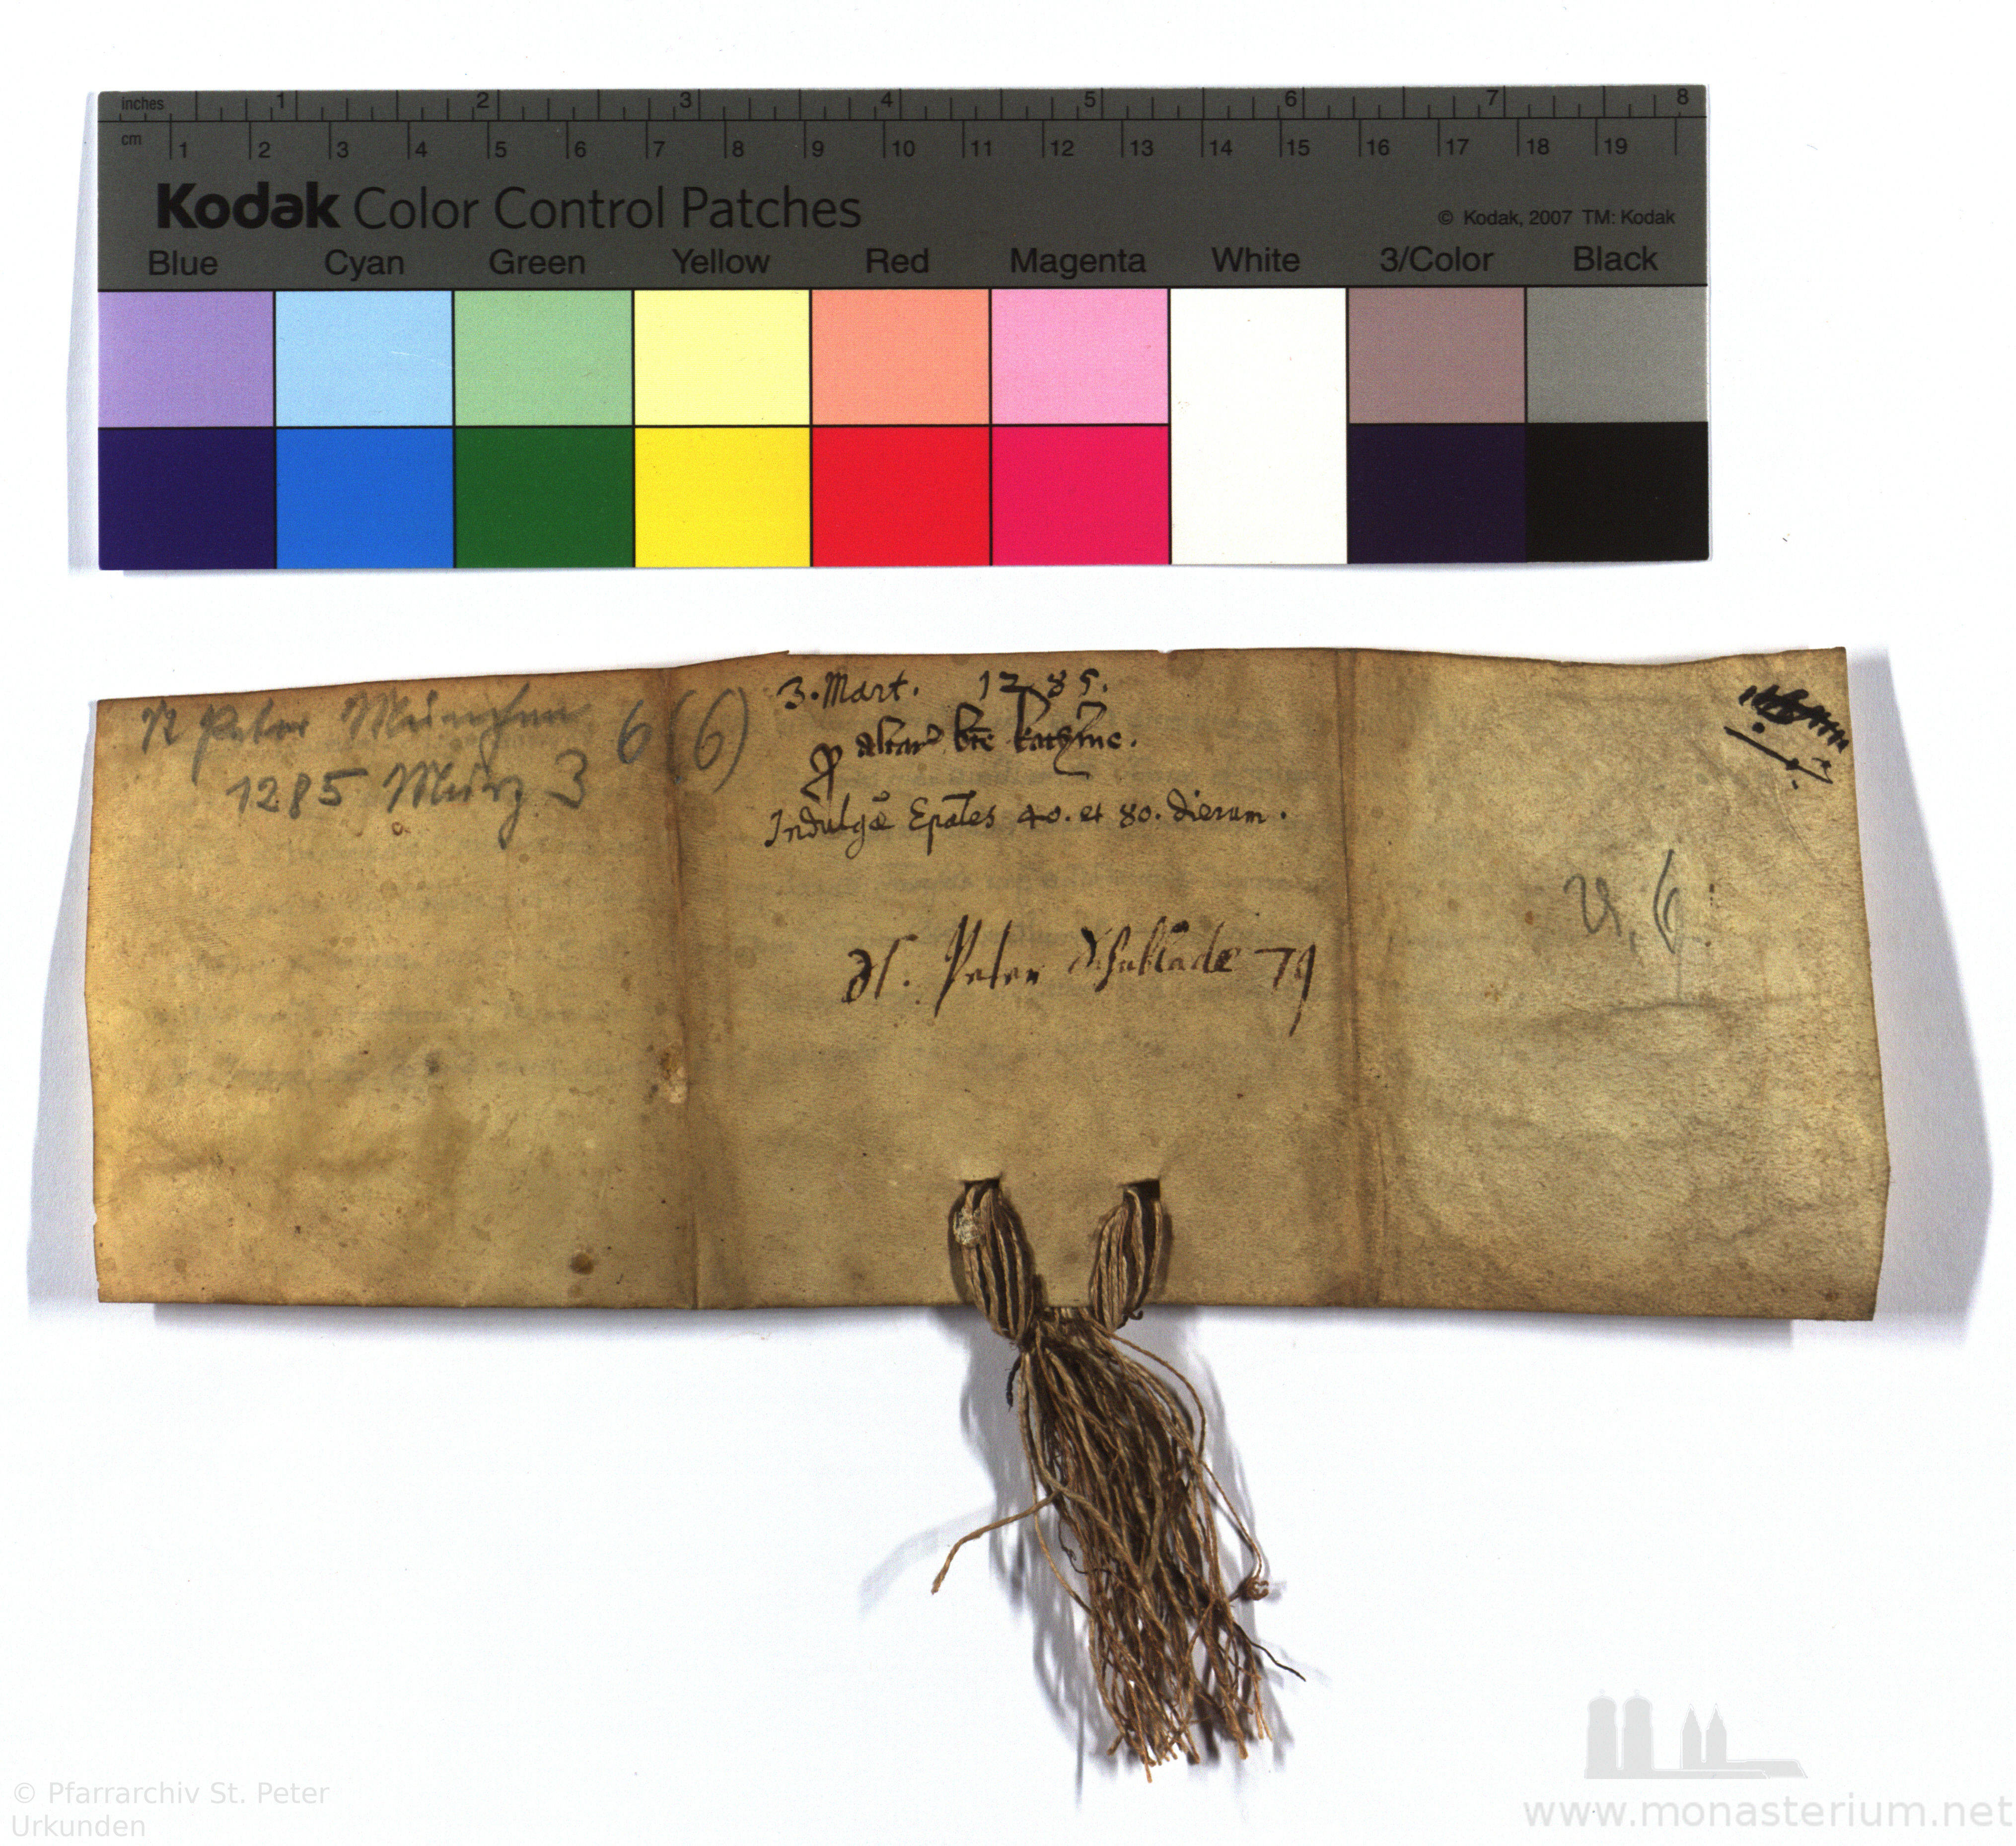 inches 1 2 3 4 5 6 7 8
cm 1 2 3 4 5 6 7 8 9 10 11 12 13 14 15 16 17 18 19
Kodak Color Control Patches
© Kodak, 2007 TM: Kodak
Blue Cyan Green Yellow Red Magenta White 3/Color Black
St Peter München 6 (6)
1285 März 3
3. Mart. 1285.
altar bte kathine.
Indulgē Epales 40. et 80. dierum.
St. Peter Schublade 79
U. 6
© Pfarrarchiv St. Peter
Urkunden
www.monasterium.net